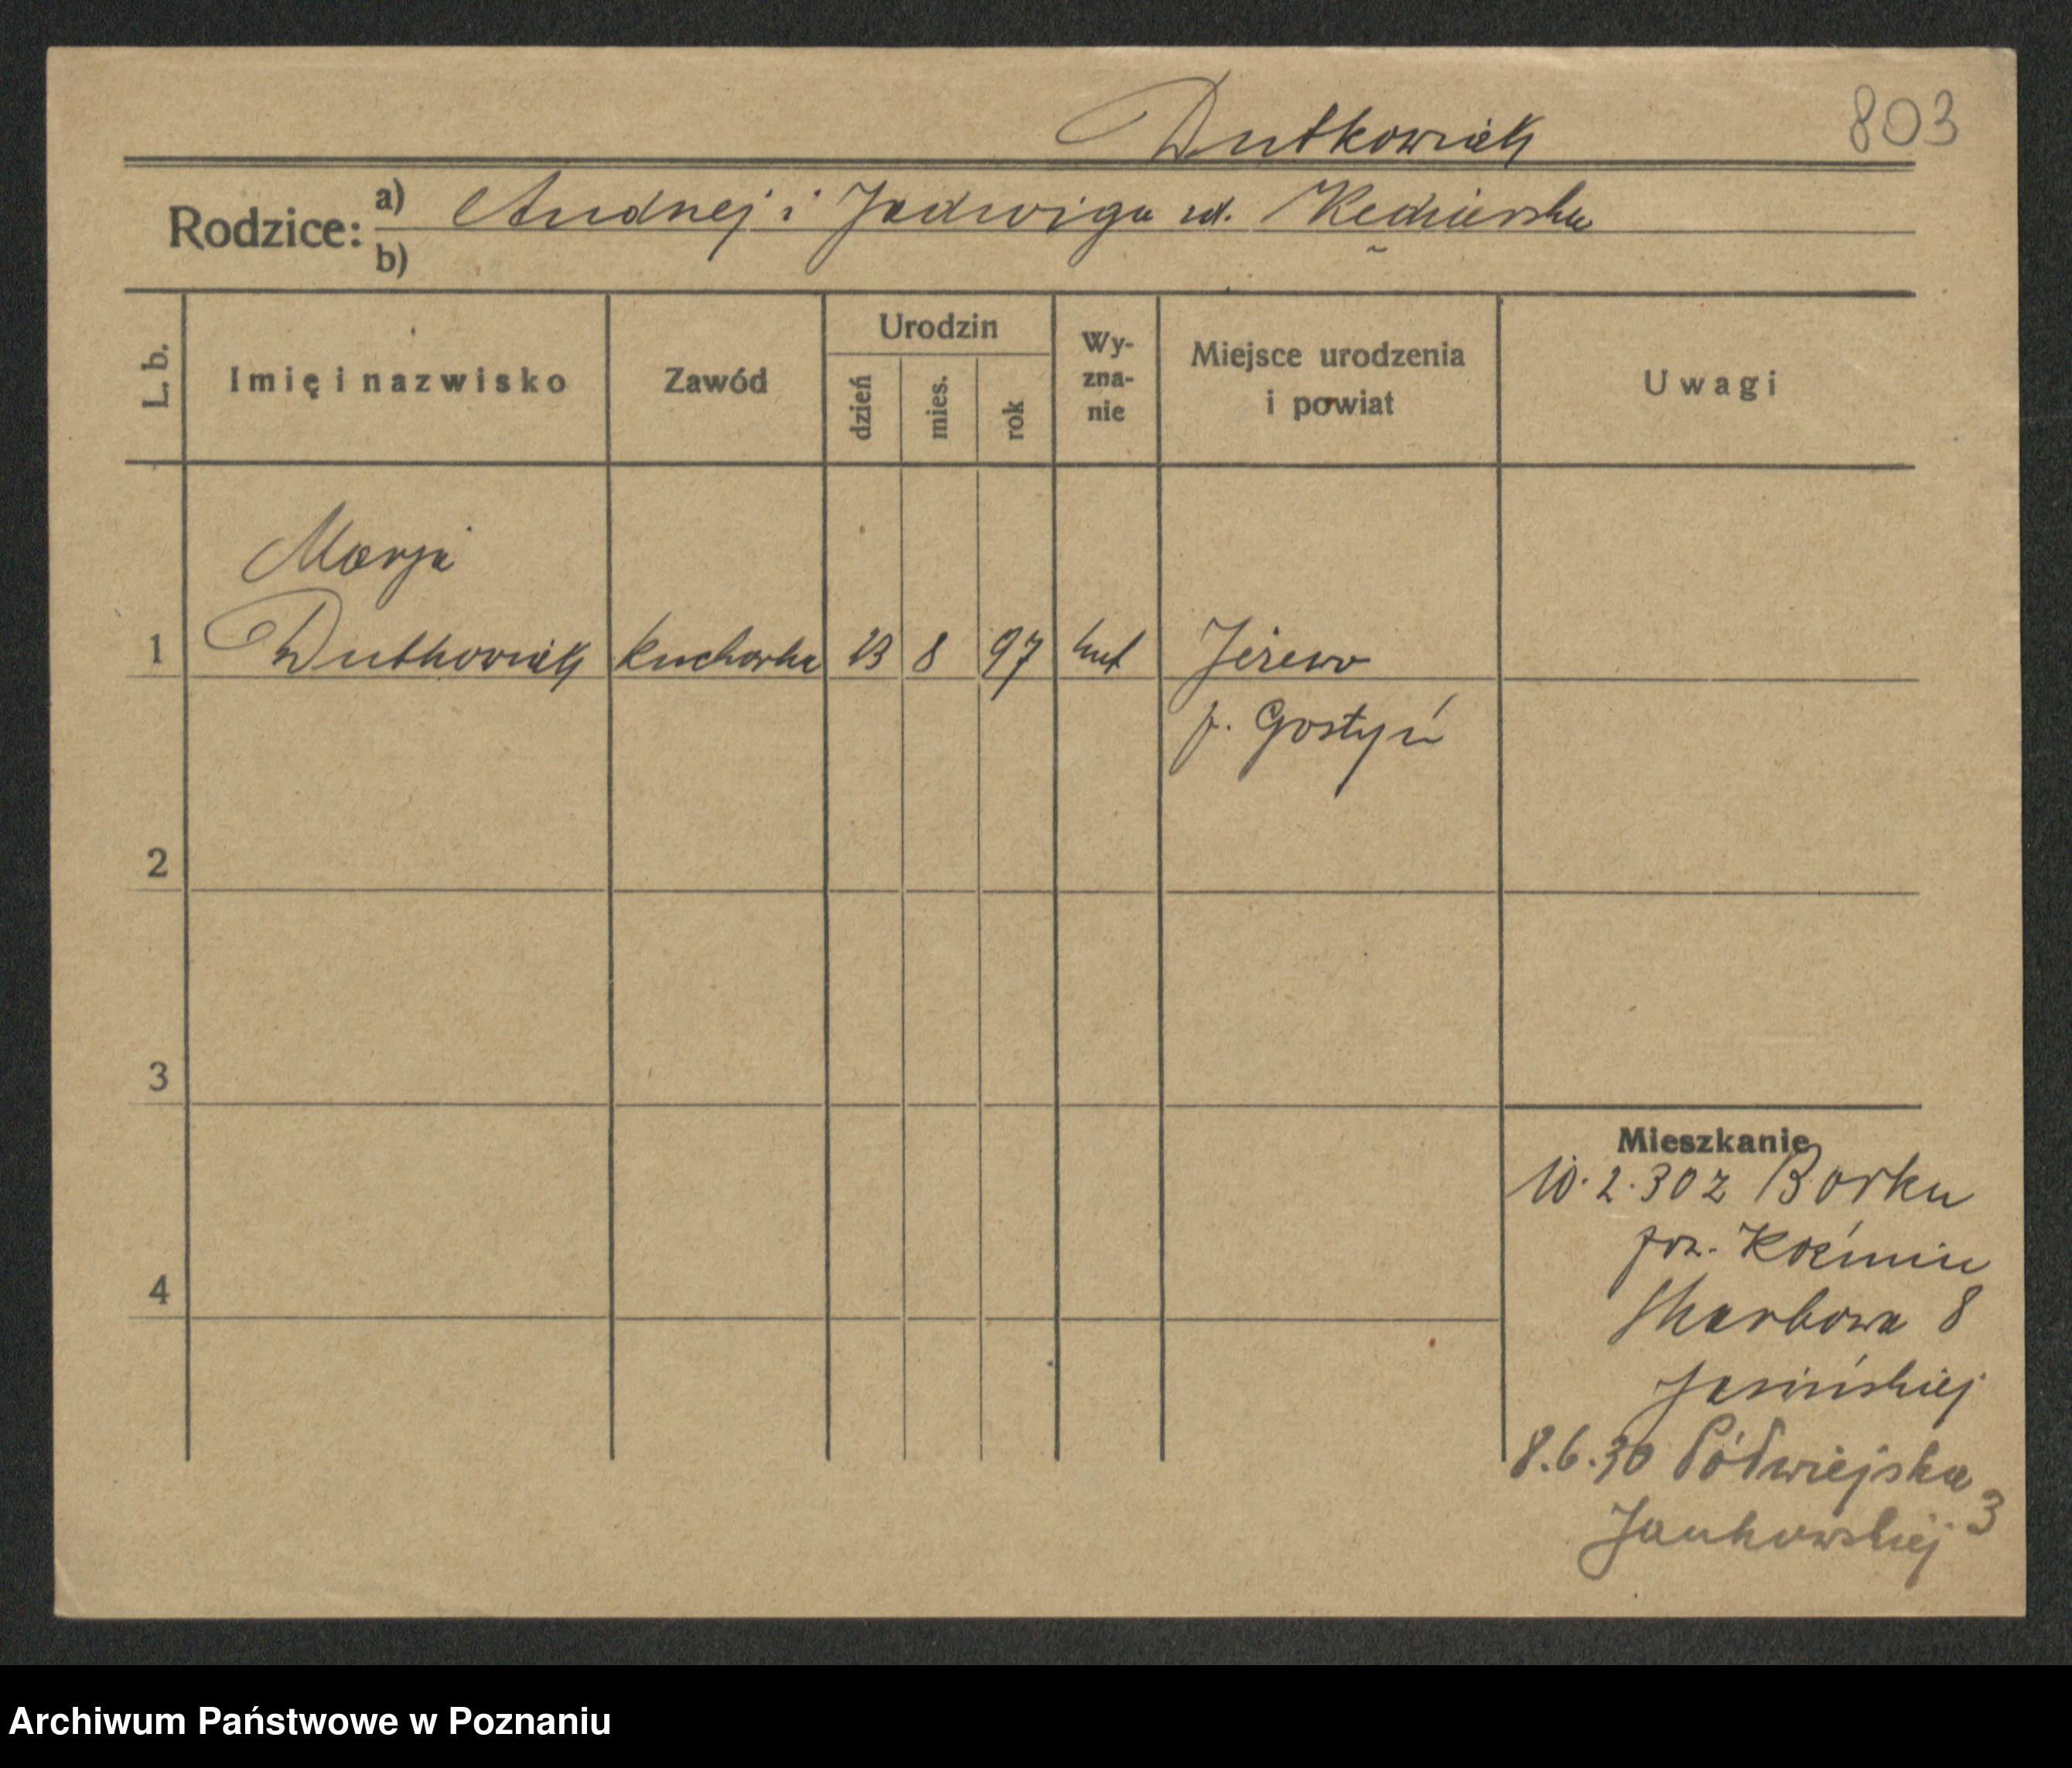 Dutkowiak
803
Rodzice: a) Andrzej i Jadwiga zd. Kędzierska
b)
L. b.
Imię i nazwisko
Zawód
Urodzin
dzień
mies.
rok
Wy-
zna-
nie
Miejsce urodzenia
i powiat
Uwagi
Marja
1 Dutkowiak kucharka 23 8 97 kat Jeżewo
p. Gostyń
2
3
4
Mieszkanie
10.2.30 z Borku
pow. Koźmin
Skarbowa 8
Jasińskiej
8.6.30 Półwiejska 3
Jankowskiej
Archiwum Państwowe w Poznaniu